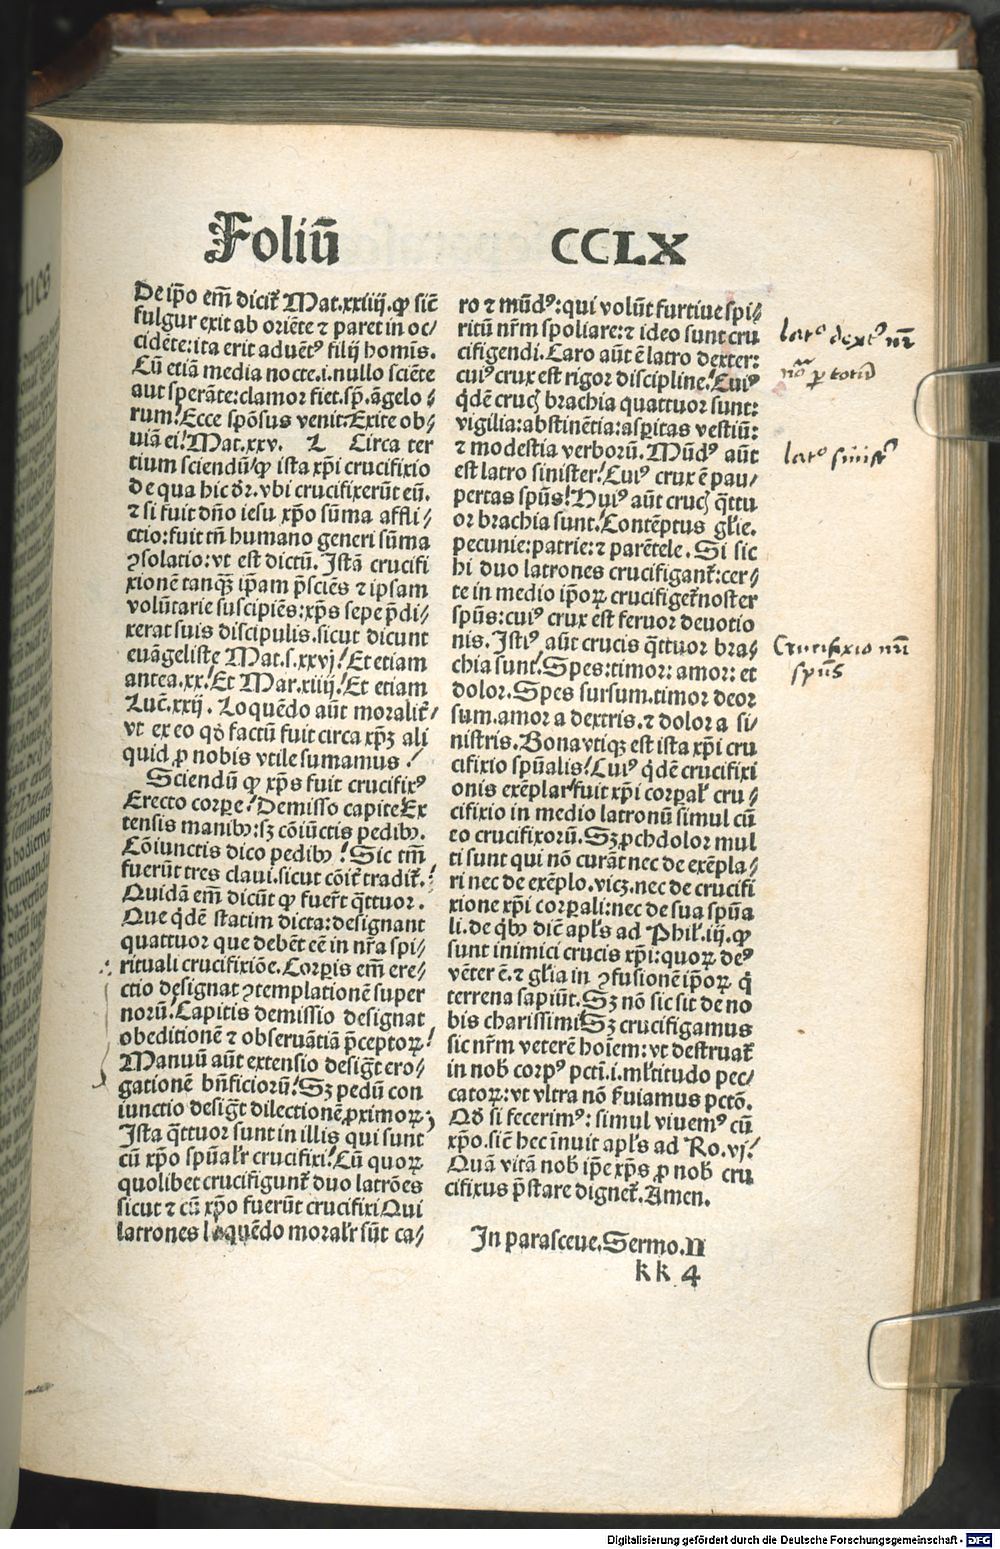 Foliū CCLX
De ip̄o em̄ dicit᷑ Mat.xxiiij.ꝙ sic̄
fulgur exit ab oriēte ⁊ paret in oc⸗
cidēte:ita erit aduēt⁹ filij homīs.
Cū etiā media nocte.i.nullo sciēte
aut sperāte:clamor fiet.sp̄.āgelo⸗
rum/Ecce spōsus venit:Exite ob⸗
uiā ei/Mat.xxv. L Circa ter
tium sciendū/ꝙ ista xp̄i crucifixio
de qua hic dr̄.vbi crucifixerūt eū.
⁊ si fuit dño iesu xp̄o sūma affli⸗
ctio:fuit tn̄ humano generi sūma
ꝯsolatio:vt est dictū. Istā crucifi
xionē tanqꝫ ip̄am p̄sciēs ⁊ ipsam
volūtarie suscipiēs:xp̄s sepe p̄di⸗
xerat suis discipulis.sicut dicunt
euāgeliste Mat.s.xxvj/Et etiam
antea.xx/Et Mar.xiiij/Et etiam
Luc̄.xxij. Loquēdo aūt moralit᷑/
vt ex eo qḋ factū fuit circa xp̄ꝫ ali
quid ꝓ nobis vtile sumamus/
Sciendū ꝙ xp̄s fuit crucifix⁹
Erecto corꝑe/Demisso capite Ex
tensis manibꝫ:sꝫ cōiūctis pedibꝫ.
Cōiunctis dico pedibꝫ/Sic tm̄
fuerūt tres claui.sicut cōit᷑ tradit᷑./
Quidā em̄ dicūt ꝙ fuer̄t q̄ttuor.
Que q̇dē statim dicta:designant
quattuor que debēt eē in nr̄a spi⸗
rituali crucifixiōe.Corꝑis em̄ ere⸗
ctio designat ꝯtemplationē super
norū/Capitis demissio designat
obeditionē ⁊ obseruātiā p̄ceptoꝝ/
Manuū aūt extensio desiḡt ero⸗
gationē bn̄ficiorū/Sꝫ pedū con
iunctio desiḡt dilectionē ꝓximoꝝ;
Ista q̄ttuor sunt in illis qui sunt
cū xp̄o spūalr̄ crucifixi/Cū quoꝝ
quolibet crucifigunt᷑ duo latrōes
sicut ⁊ cū xp̄o fuerūt crucifixi Qui
latrones loquēdo moralr̄ sūt ca⸗
ro ⁊ mūd⁹:qui volūt furtiue spi⸗
ritū nr̄m spoliare:⁊ ideo sunt cru
cifigendi.Caro aūt ē latro dexter:
cui⁹ crux est rigor discipline/Cui⁹
q̇dē crucꝭ brachia quattuor sunt:
vigilia:abstinētia:asꝑitas vestiū:
⁊ modestia verborū. Mūd⁹ aūt
est latro sinister/Cui⁹ crux ē pau⸗
pertas spūs/Hui⁹ aūt crucꝭ q̄ttu
or brachia sunt/Contēptus gl̄ie.
pecunie:patrie:⁊ parētele. Si sic
hi duo latrones crucifigant᷑:cer⸗
te in medio ip̄oꝝ crucifiget᷑ noster
spūs:cui⁹ crux est feruor deuotio
nis. Isti⁹ aūt crucis q̄ttuor bra⸗
chia sunt/Spes:timor: amor: et
dolor. Spes sursum.timor deor
sum.amor a dextris.⁊ dolor a si⸗
nistris.Bona vtiqꝫ est ista xp̄i cru
cifixio spūalis/Cui⁹ q̇dē crucifixi
onis exēplar fuit xp̄i corꝑal̄ cru⸗
cifixio in medio latronū simul cū
eo crucifixorū.Sꝫ ꝓch dolor mul
ti sunt qui nō curāt nec de exēpla⸗
ri nec de exēplo.vicꝫ.nec de crucifi
xione xp̄i corꝑali:nec de sua spūa
li.de q̇bꝫ dic̄ apl̄s ad Phil̄.iij.ꝙ
sunt inimici crucis xp̄i:quoꝝ de⁹
vēter ē.⁊ gl̄ia in ꝯfusionē ip̄oꝝ q̇
terrena sapiūt.Sꝫ nō sic sit de no
bis charissimi/Sꝫ crucifigamus
sic nr̄m veterē hoīem:vt destruat᷑
in nob̄ corp⁹ pctī.i.ml̄titudo pec⸗
catoꝝ:vt vltra nō ẜuiamus pctō.
Qḋ si fecerim⁹: simul viuem⁹ cū
xp̄o.sic̄ hec īnuit apl̄s ad Ro.vj/
Quā vitā nob̄ ip̄e xp̄s ꝓ nob̄ cru
cifixus p̄stare dignet᷑.Amen.
In parasceue.Sermo.II
kk 4
latrᵒ dext⁹ nr̄
ꝑ totū
latrᵒ sinist⁹
Crucifixio nr̄i
spūs
Digitalisierung gefördert durch die Deutsche Forschungsgemeinschaft - DFG